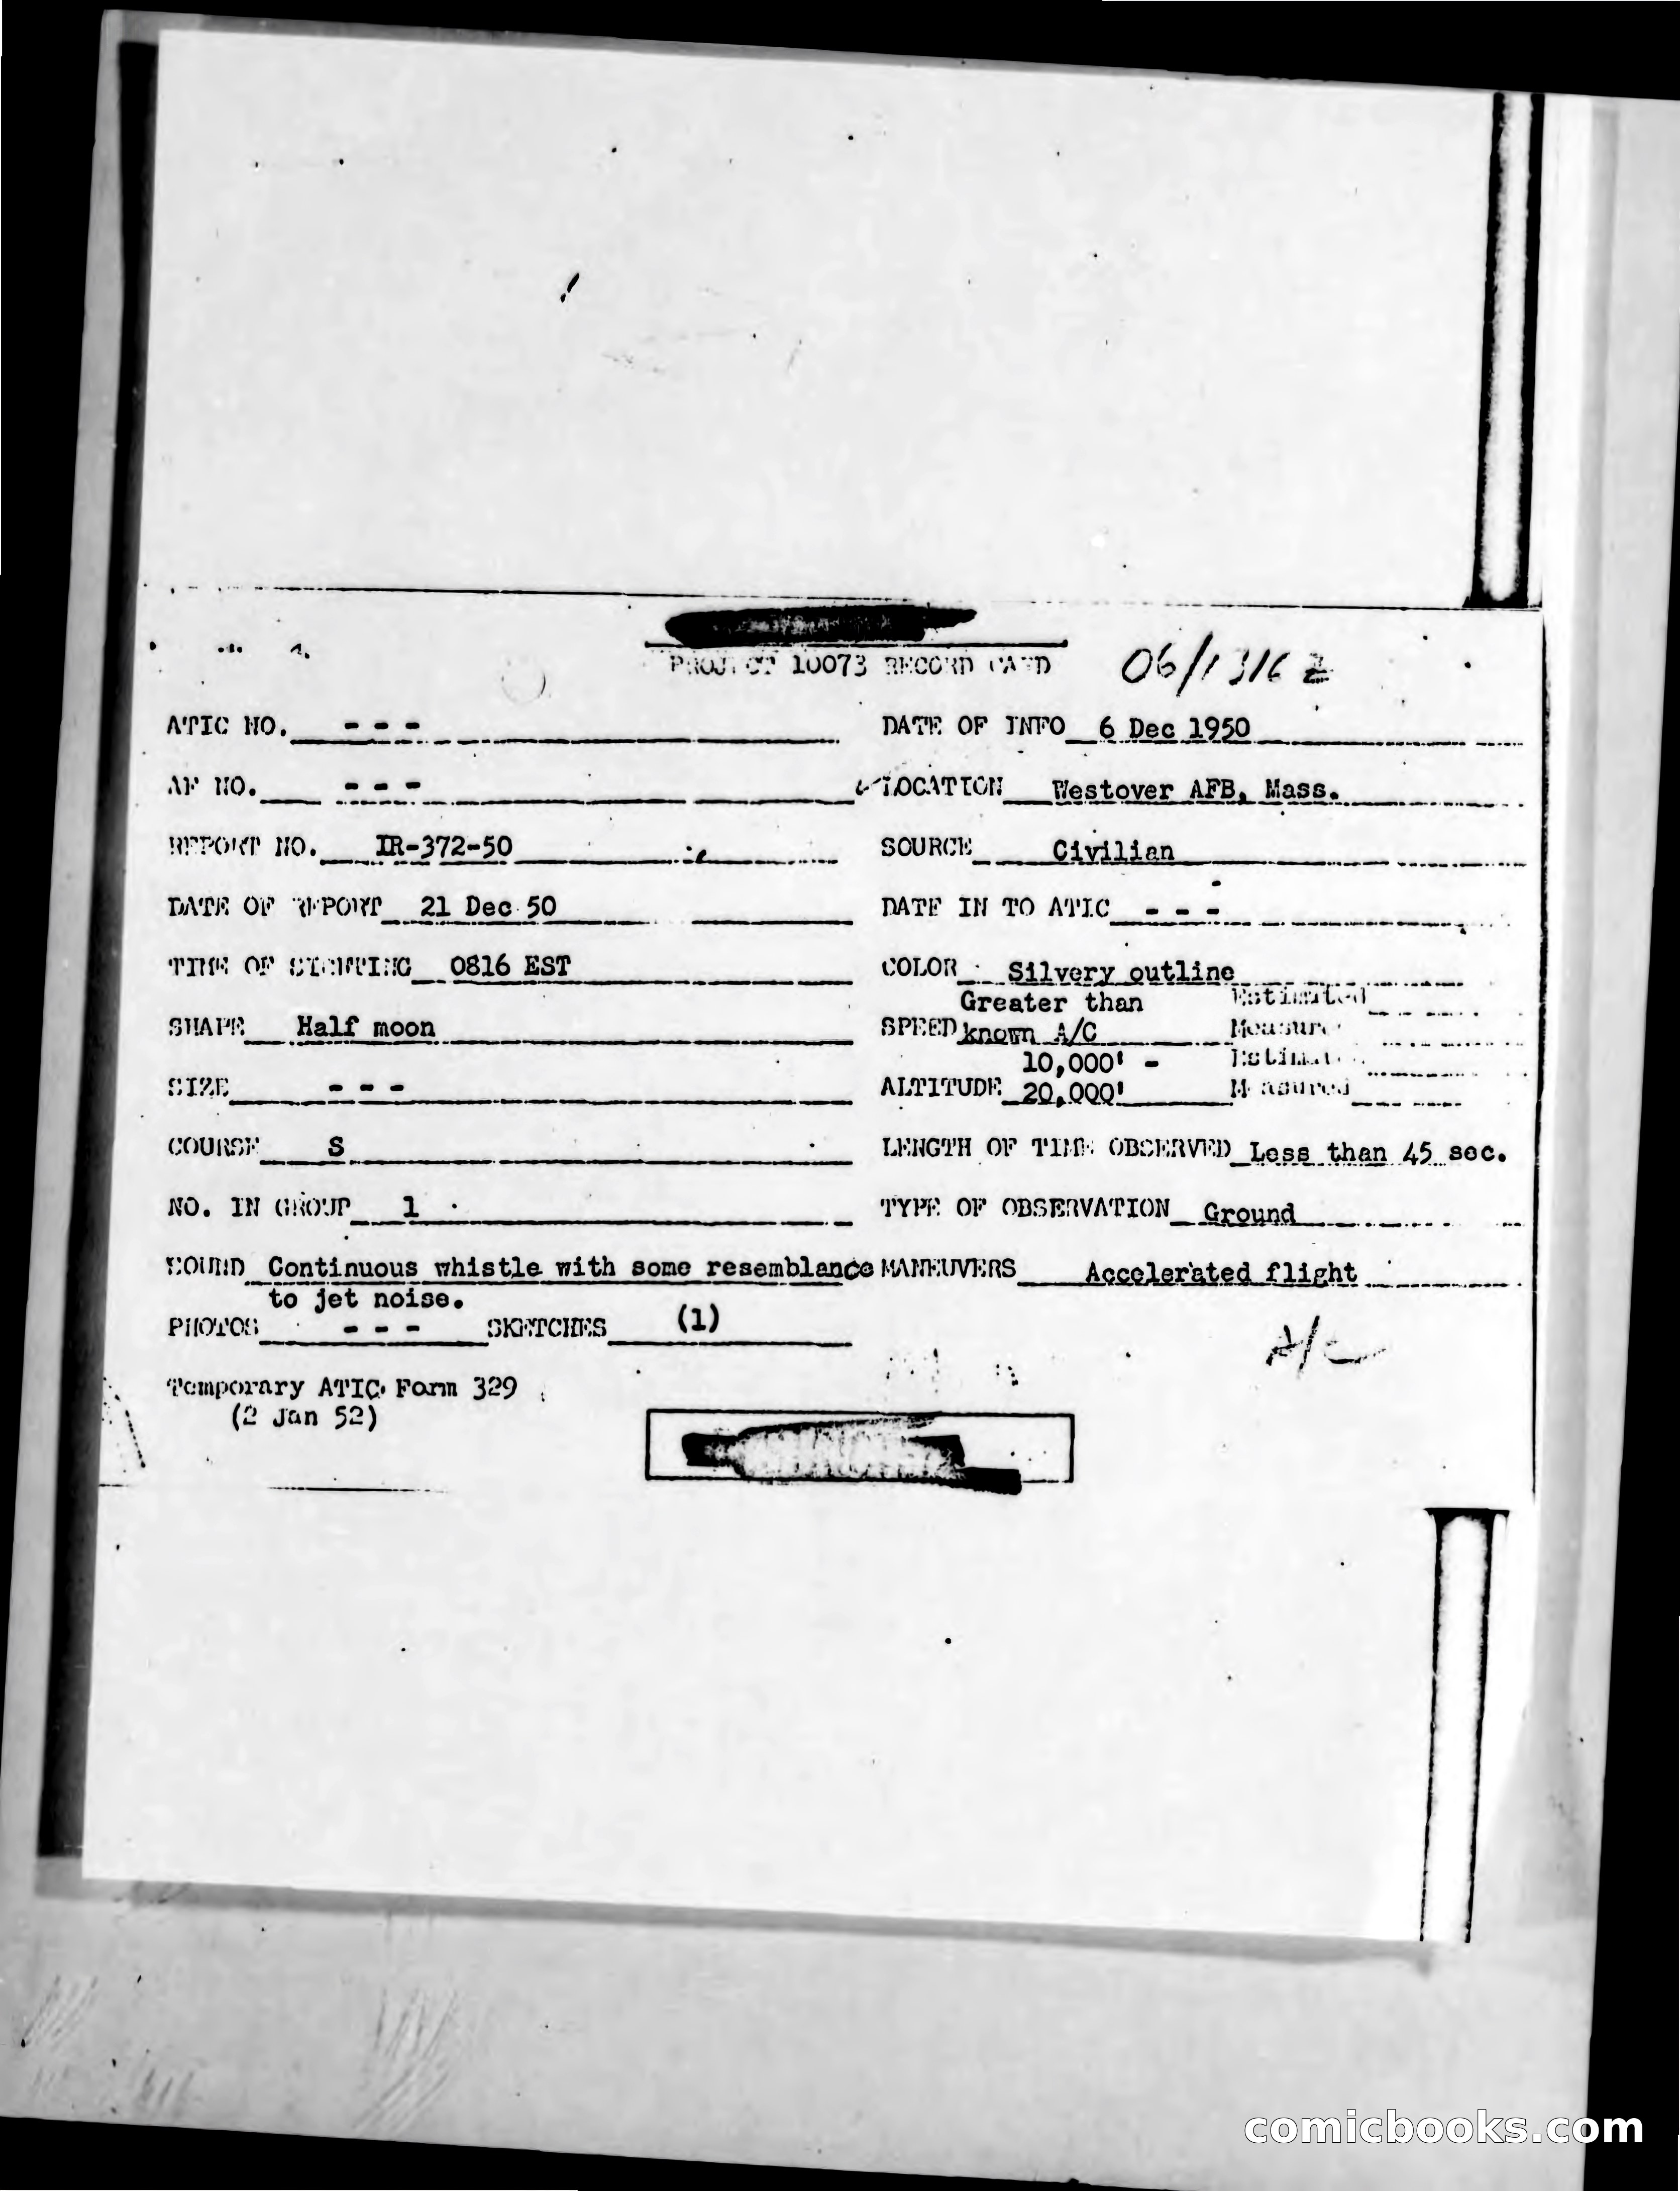 PROJECT 10073 RECORD CARD 06/1316 Z
ATIC NO. - - - DATE OF INFO 6 Dec 1950
AF NO. - - - LOCATION Westover AFB, Mass.
REPORT NO. IR-372-50 SOURCE Civilian
DATE OF REPORT 21 Dec 50 DATE IN TO ATIC - - -
TIME OF SIGHTING 0816 EST COLOR Silvery outline
Greater than Estimated
SHAPE Half moon SPEED known A/C Measured
10,000' - Estimated
SIZE - - - ALTITUDE 20,000' Measured
COURSE S LENGTH OF TIME OBSERVED Less than 45 sec.
NO. IN GROUP 1 TYPE OF OBSERVATION Ground
SOUND Continuous whistle with some resemblance MANEUVERS Accelerated flight
to jet noise.
PHOTOS - - - SKETCHES (1)
A/C
Temporary ATIC Form 329
(2 Jan 52)
comicbooks.com